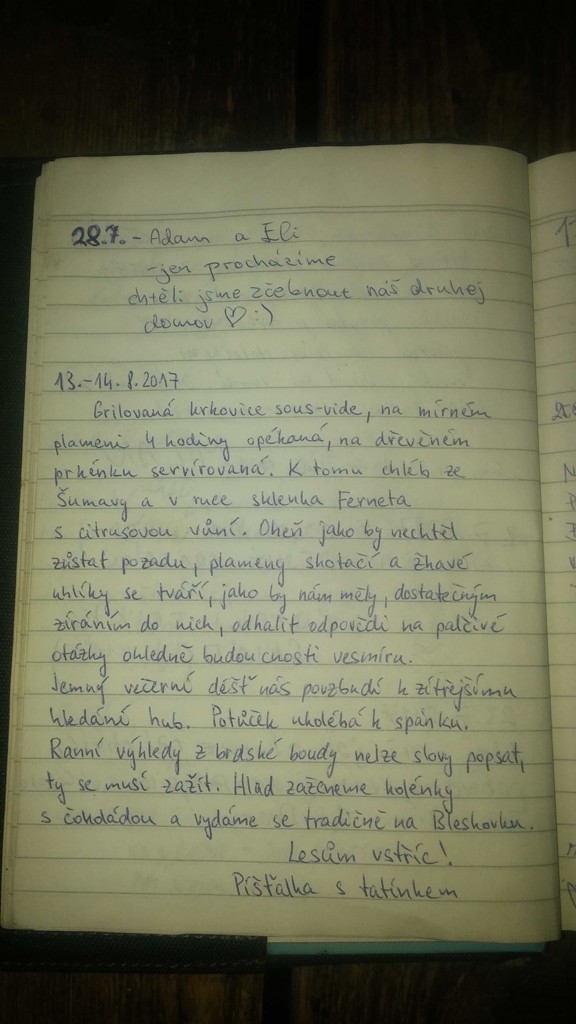 28.7. - Adam a Eli
- jen procházíme
chtěli jsme zčeknout náš druhej
domov ♡ :)
13.-14.8.2017
Grilovaná krkovice sous-vide, na mírném
plameni 4 hodiny opékaná, na dřevěném
prkénku servírovaná. K tomu chléb ze
Šumavy a v ruce sklenka Ferneta
s citrusovou vůní. Oheň jako by nechtěl
zůstat pozadu, plameny skotačí a žhavé
uhlíky se tváří, jako by nám měly, dostatečným
zíráním do nich, odhalit odpovědi na palčivé
otázky ohledně budoucnosti vesmíru.
Jemný večerní déšť nás povzbudí k zítřejšímu
hledání hub. Potůček ukolébá k spánku.
Ranní výhledy z brdské boudy nelze slovy popsat,
ty se musí zažít. Hlad zaženeme kolénky
s čokoládou a vydáme se tradičně na Bleskovku.
Lesům vstříc!
Píšťalka s tatínkem